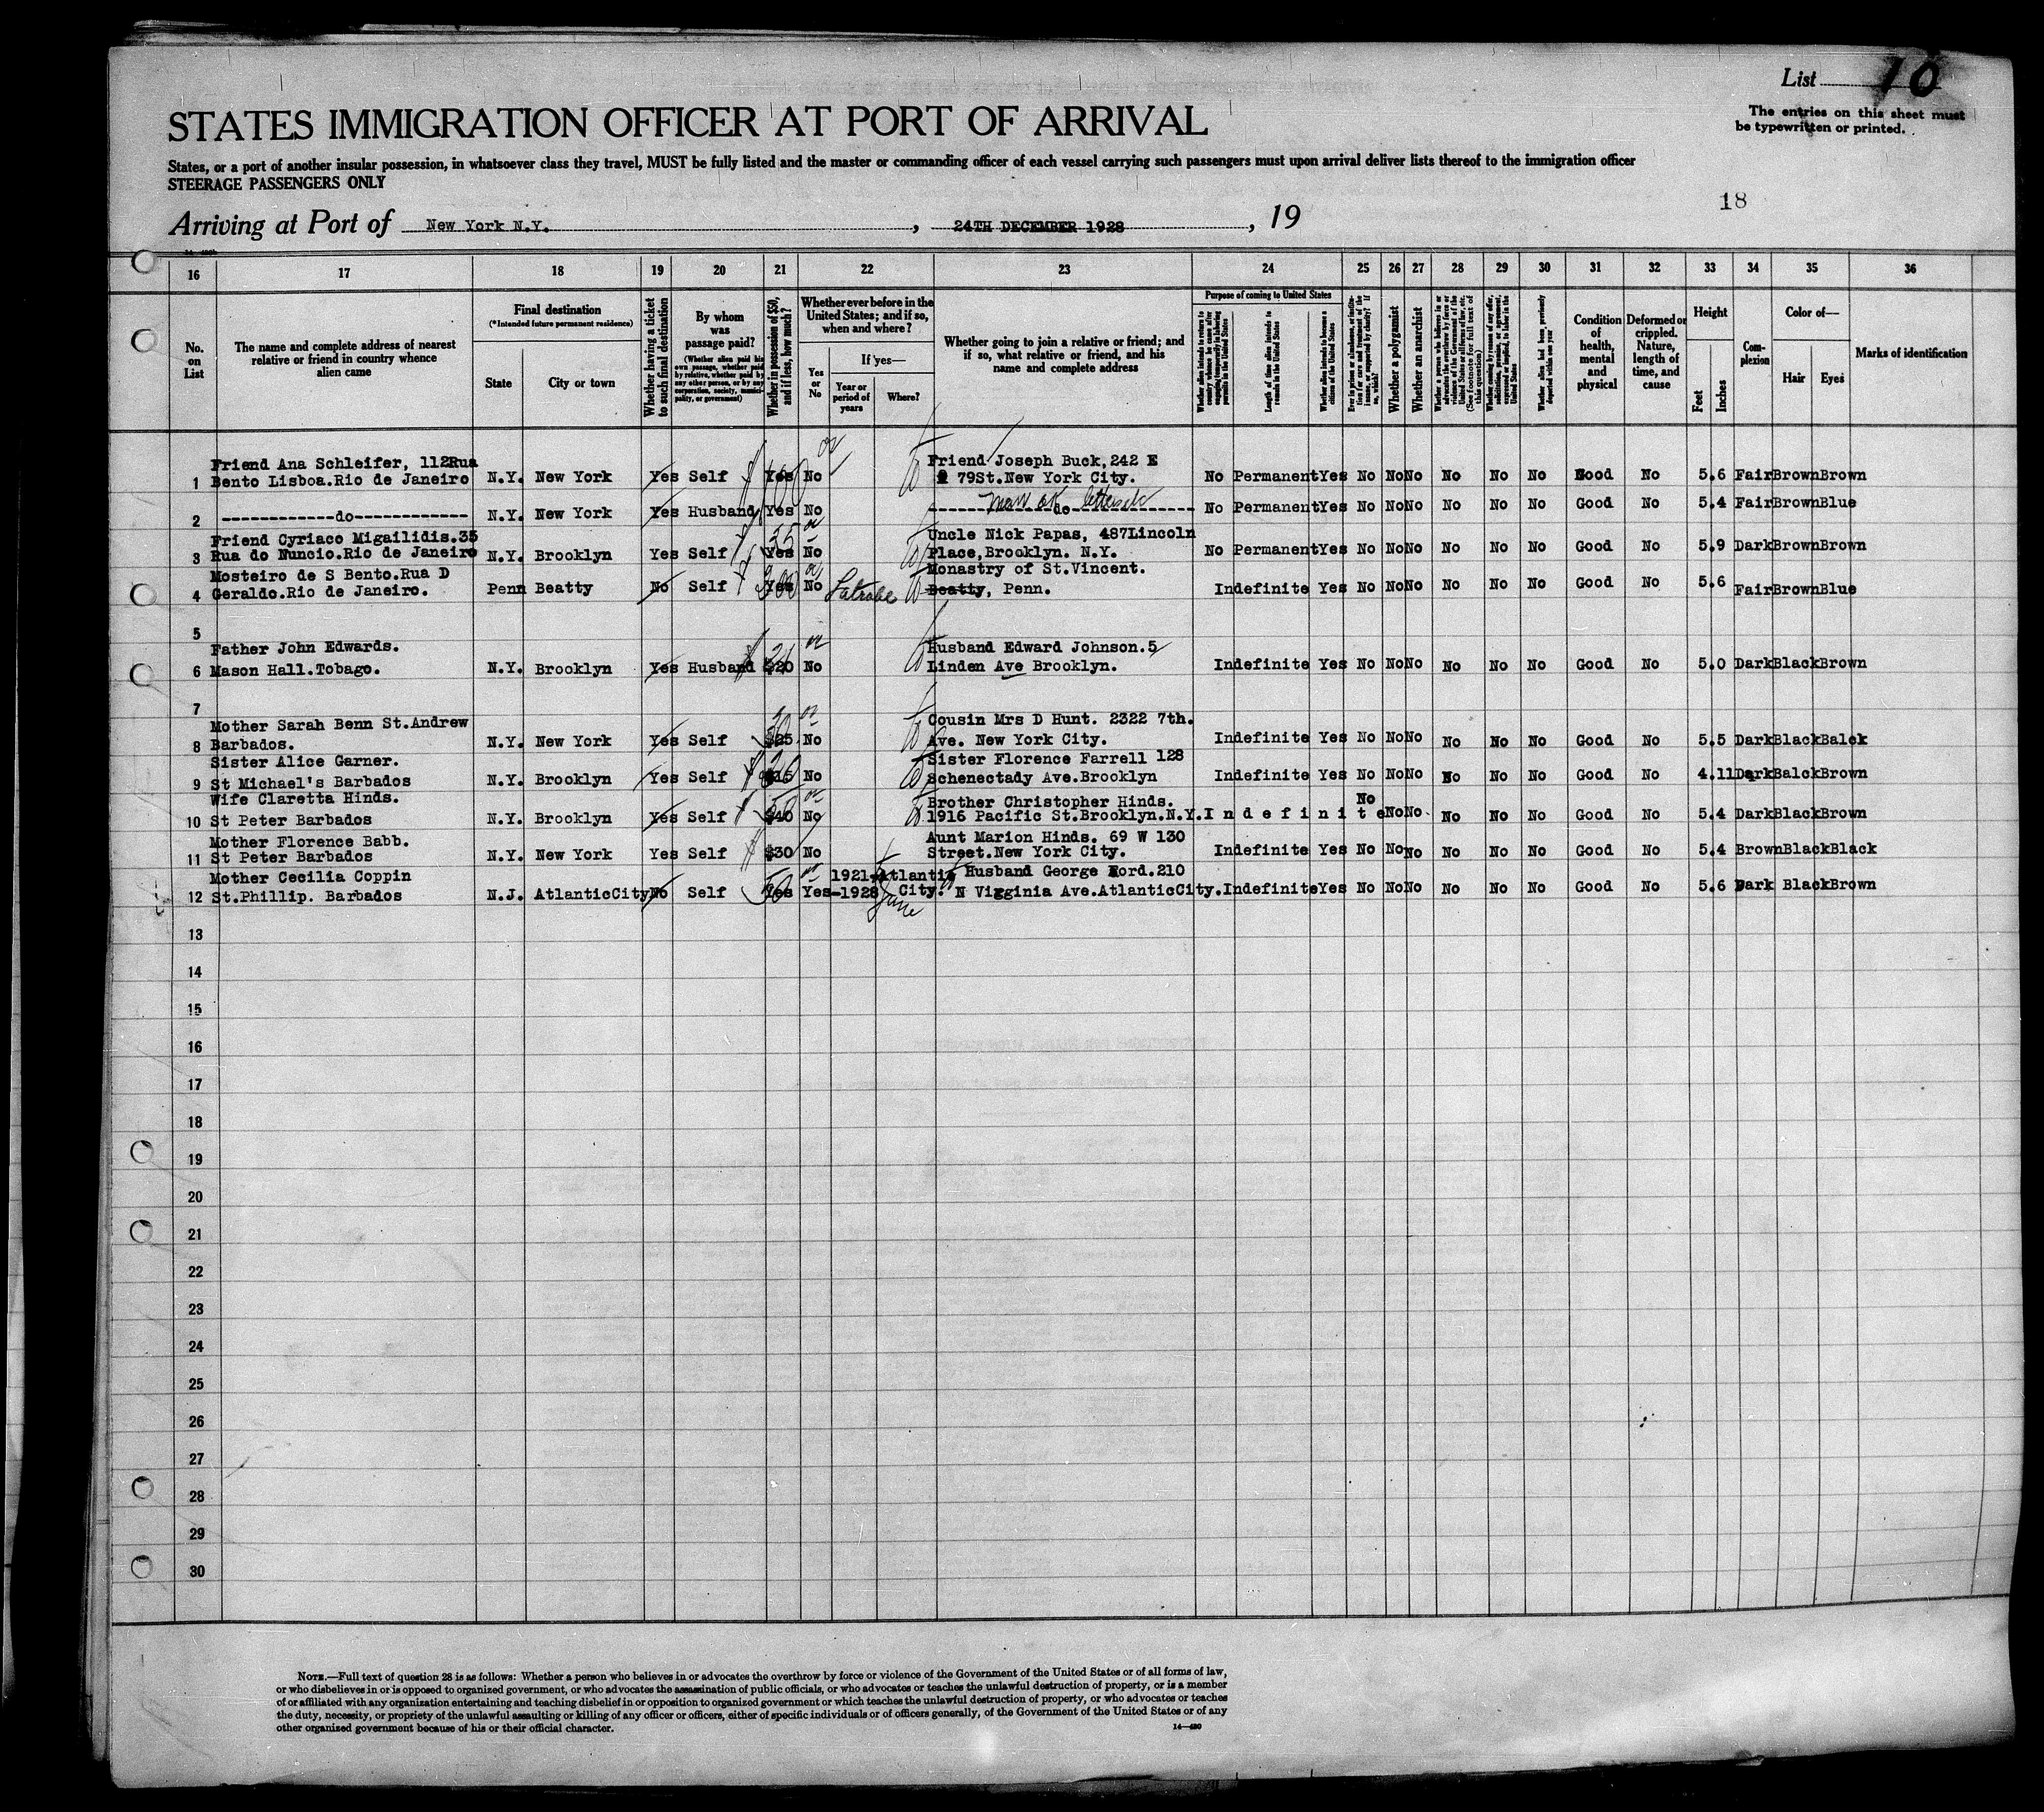 List 10
The entries on this sheet must
be typewritten or printed.
STATES IMMIGRATION OFFICER AT PORT OF ARRIVAL
States, or a port of another insular possession, in whatsoever class they travel, MUST be fully listed and the master or commanding officer of each vessel carrying such passengers must upon arrival deliver lists thereof to the immigration officer
STEERAGE PASSENGERS ONLY
18
Arriving at Port of New York N.Y. , 24TH DECEMBER 1928 , 19
16 17 18 19 20 21 22 23 24 25 26 27 28 29 30 31 32 33 34 35 36
No. on List
The name and complete address of nearest
relative or friend in country whence
alien came
Final destination
(*Intended future permanent residence)
State City or town
Whether having a ticket
to such final destination
By whom
was
passage paid?
(Whether alien paid his
own passage, whether paid
by relative, whether paid by
any other person, or by any
corporation, society, munici-
pality, or government)
Whether in possession of $50,
and if less, how much?
Whether ever before in the
United States; and if so,
when and where?
Yes or No
If yes—
Year or
period of
years
Where?
Whether going to join a relative or friend; and
if so, what relative or friend, and his
name and complete address
Purpose of coming to United States
Length of time alien intends to
remain in the United States
Whether alien intends to become a
citizen of the United States
Whether a polygamist
Whether an anarchist
Whether alien had been previously
deported within one year
Condition
of
health,
mental
and
physical
Deformed or
crippled.
Nature,
length of
time, and
cause
Height
Feet Inches
Com-
plexion
Color of—
Hair Eyes
Marks of identification
Friend Ana Schleifer, 112Rua Friend Joseph Buck,242 E
1 Bento Lisboa.Rio de Janeiro N.Y. New York Yes Self Yes No 79St.New York City. No Permanent Yes No No No No No No Good No 5.6 Fair Brown Brown
2 ------------do------------ N.Y. New York Yes Husband Yes No ------------do------------ No Permanent Yes No No No No No No Good No 5.4 Fair Brown Blue
Friend Cyriaco Migailidis.35 Uncle Nick Papas, 487Lincoln
3 Rua do Nuncio.Rio de Janeiro N.Y. Brooklyn Yes Self Yes No Place,Brooklyn. N.Y. No Permanent Yes No No No No No No Good No 5.9 Dark Brown Brown
Mosteiro de S Bento.Rua D Monastry of St.Vincent.
4 Geraldo.Rio de Janeiro. Penn Beatty No Self Yes No Latrobe Beatty, Penn. Indefinite Yes No No No No No No Good No 5.6 Fair Brown Blue
5
Father John Edwards. Husband Edward Johnson.5
6 Mason Hall.Tobago. N.Y. Brooklyn Yes Husband $20 No Linden Ave Brooklyn. Indefinite Yes No No No No No No Good No 5.0 Dark Black Brown
7
Mother Sarah Benn St.Andrew Cousin Mrs D Hunt. 2322 7th.
8 Barbados. N.Y. New York Yes Self $25 No Ave. New York City. Indefinite Yes No No No No No No Good No 5.5 Dark Black Balck
Sister Alice Garner. Sister Florence Farrell 128
9 St Michael's Barbados N.Y. Brooklyn Yes Self $15 No Schenectady Ave.Brooklyn Indefinite Yes No No No No No No Good No 4.11 Dark Balck Brown
Wife Claretta Hinds. Brother Christopher Hinds. No
10 St Peter Barbados N.Y. Brooklyn Yes Self $40 No 1916 Pacific St.Brooklyn.N.Y. Indefinite No No No No No Good No 5.4 Dark Black Brown
Mother Florence Babb. Aunt Marion Hinds. 69 W 130
11 St Peter Barbados N.Y. New York Yes Self $30 No Street.New York City. Indefinite Yes No No No No No No Good No 5.4 Brown Black Black
Mother Cecilia Coppin 1921 Atlantic Husband George Ford.210
12 St.Phillip. Barbados N.J. AtlanticCity No Self Yes Yes -1928 City. N Virginia Ave.AtlanticCity. Indefinite Yes No No No No No No Good No 5.6 Dark Black Brown
June
13
14
15
16
17
18
19
20
21
22
23
24
25
26
27
28
29
30
NOTE.—Full text of question 28 is as follows: Whether a person who believes in or advocates the overthrow by force or violence of the Government of the United States or of all forms of law,
or who disbelieves in or is opposed to organized government, or who advocates the assassination of public officials, or who advocates or teaches the unlawful destruction of property, or is a member
of or affiliated with any organization entertaining and teaching disbelief in or opposition to organized government or which teaches the unlawful destruction of property, or who advocates or teaches
the duty, necessity, or propriety of the unlawful assaulting or killing of any officer or officers, either of specific individuals or of officers generally, of the Government of the United States or of any
other organized government because of his or their official character.
14—480